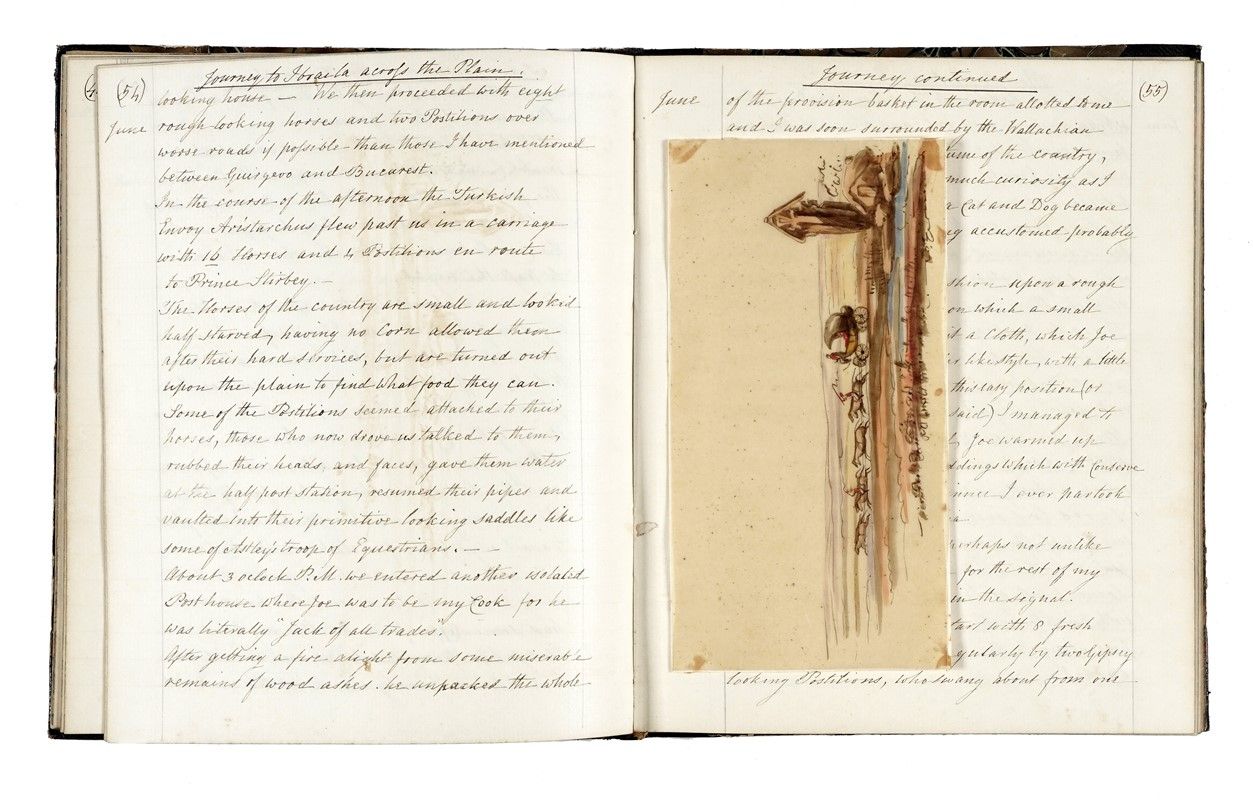 (54)
Journey to Ibraila across the Plain.
June
looking house — We then proceeded with eight
rough looking horses and two Postitions over
worse roads if possible than those I have mentioned
between Guirgevo and Bucarest.
In the course of the afternoon the Turkish
Envoy Aristarchus flew past us in a carriage
with 16 Horses and 4 Postitions en route
to Prince Stirbey. —
The Horses of the country are small and looked
half starved, having no Corn allowed them
after their hard services, but are turned out
upon the plain to find what food they can.
Some of the Postitions seemed attached to their
horses, those who now drove us talked to them,
rubbed their heads and faces, gave them water
at the half post station, resumed their pipes and
vaulted into their primitive looking saddles like
some of Astley's troop of Equestrians. — —
About 3 oclock P.M. we entered another isolated
Post house where Joe was to be my Cook for he
was literally "Jack of all trades".
After getting a fire alight from some miserable
remains of wood ashes. he unpacked the whole
Journey continued
(55)
June
of the provision basket in the room allotted to me
and I was soon surrounded by the Wallachian
ume of the country,
much curiosity as I
a Cat and Dog became
ey accustomed probably
shion upon a rough
on which a small
it a Cloth, which Joe
er like style, with a little
this easy position (or
said) I managed to
Joe warmed up
ddings which with Conserve
inner I ever partook
a
perhaps not unlike
for the rest of my
in the signal.
tart with 8 fresh
gularly by two Gipsey
looking Postitions, who swang about from one